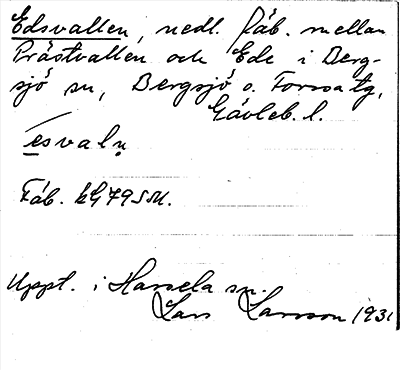 Edsvallen, nedl. fäb. mellan
Prästvallen och Ede i Berg-
sjö sn, Bergsjö o. Forsa tg,
Gävleb. l.
esvaln
Fäb. kG79SM.
Uppt. i Hassela sn.
Lars Larsson 1931